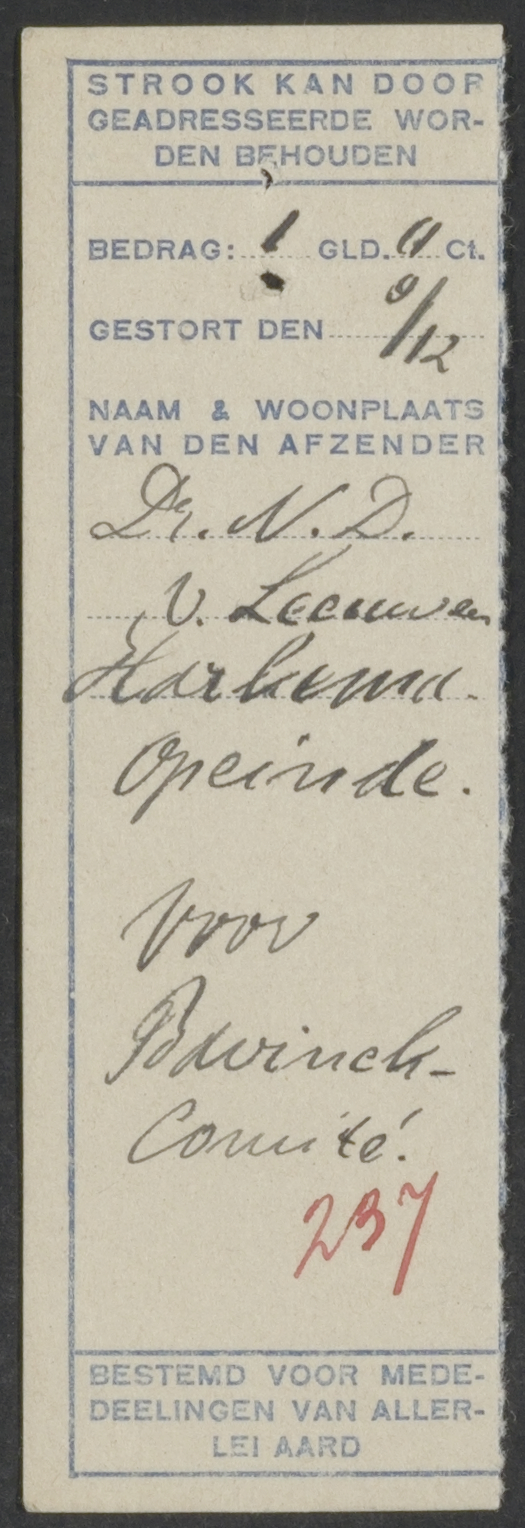 STROOK KAN DOOR
GEADRESSEERDE WOR-
DEN BEHOUDEN
BEDRAG: 1 GLD. 0 Ct.
GESTORT DEN 9/12
NAAM & WOONPLAATS
VAN DEN AFZENDER
Dr. N. D.
v. Leeuwen
Harkema-
Opeinde.
Voor
Bavinck-
Comité.
237
BESTEMD VOOR MEDE-
DEELINGEN VAN ALLER-
LEI AARD